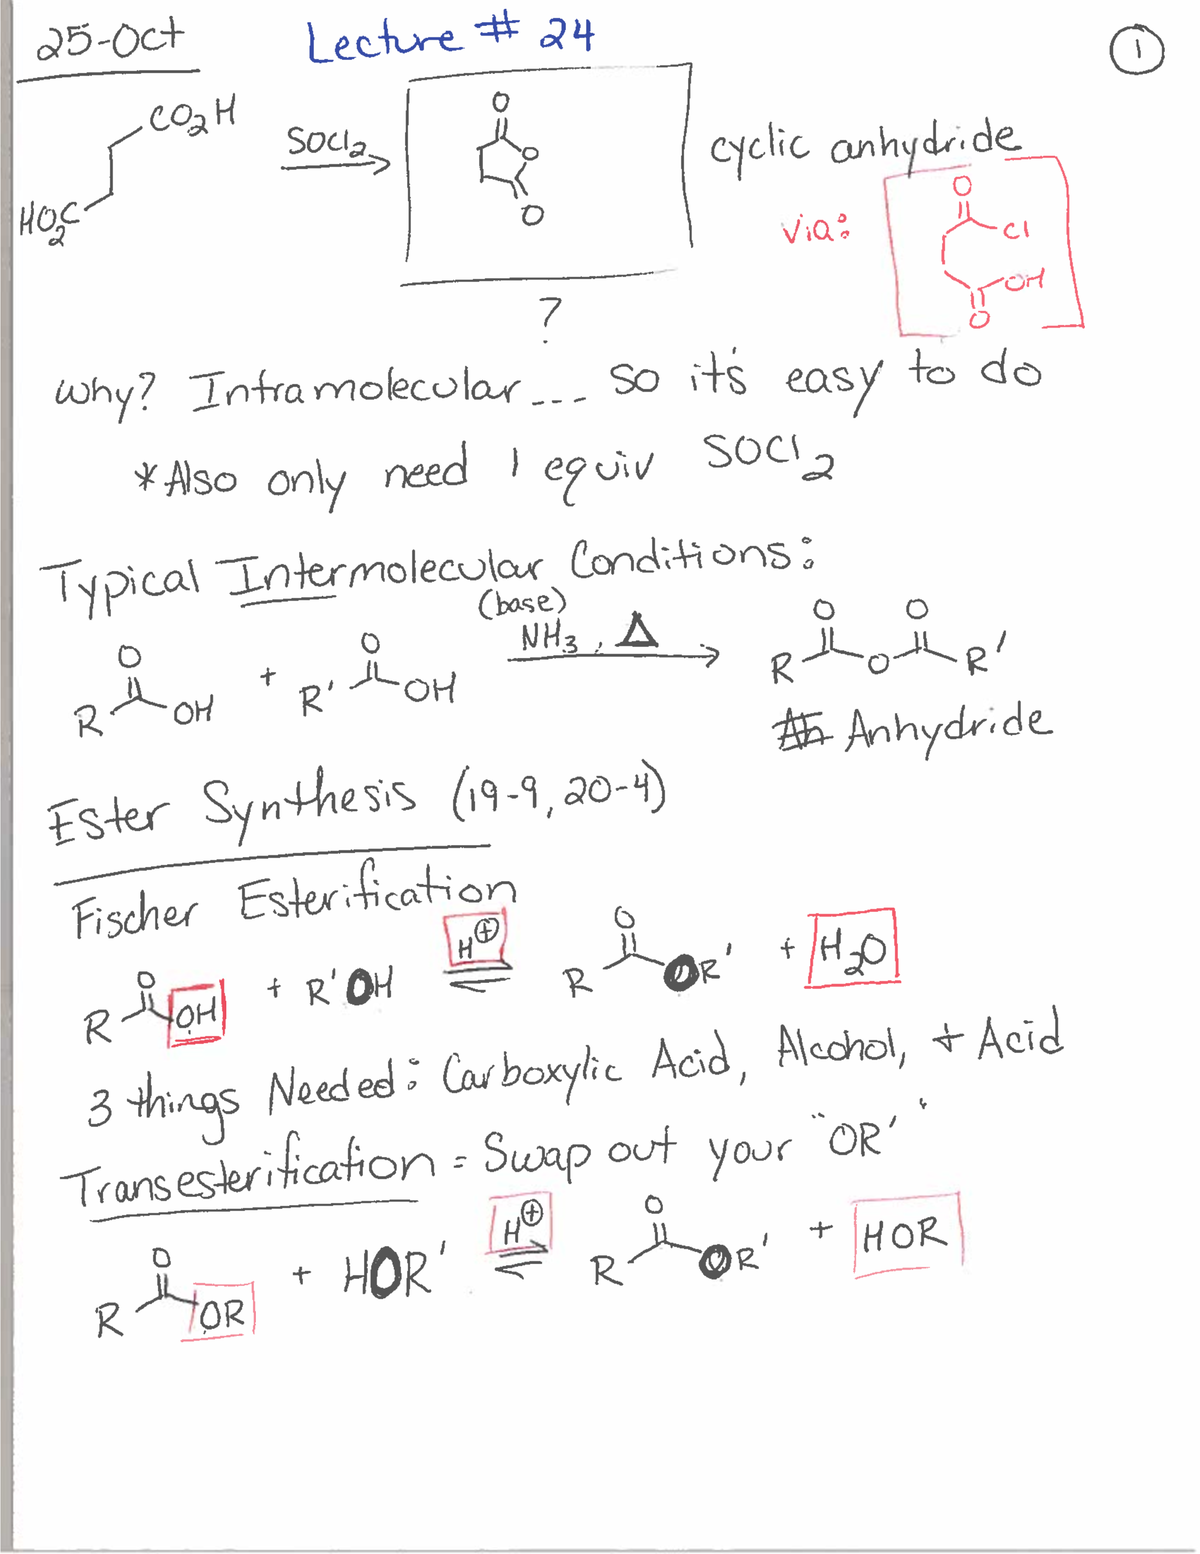 25-Oct Lecture # 24 1
CO2H
HO2C SOCl2 O O O cyclic anhydride
via: O Cl OH O
?
Why? Intramolecular --- so it's easy to do
*Also only need 1 equiv SOCl2
Typical Intermolecular Conditions:
(base)
R O OH + R' O OH NH3, Δ R O O O R'
Anhydride
Ester Synthesis (19-9, 20-4)
Fischer Esterification
R O OH + R'OH H⊕ R O OR' + H2O
3 things Needed: Carboxylic Acid, Alcohol, + Acid
Transesterification = Swap out your "OR'"
R O OR + HOR' H⊕ R O OR' + HOR